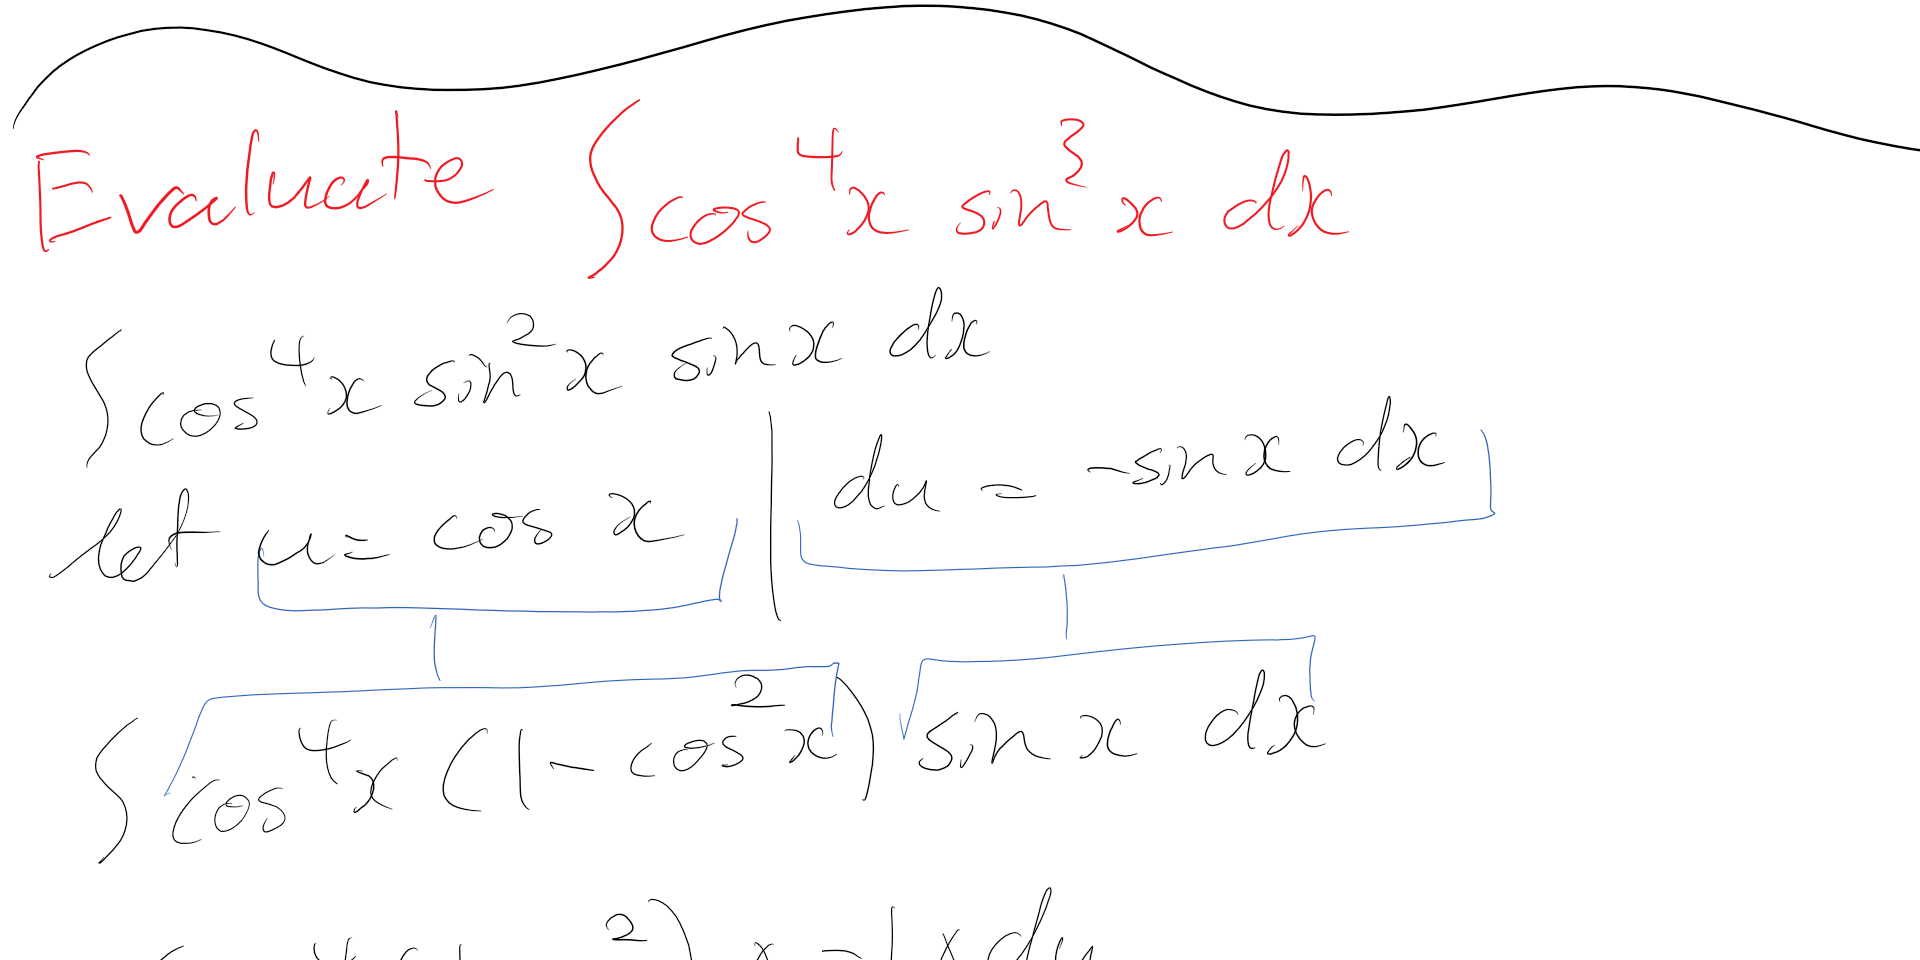 Evaluate ∫ cos⁴x sin³x dx
∫ cos⁴x sin²x sinx dx
let u = cos x | du = -sinx dx
∫ cos⁴x (1 - cos²x) sin x dx